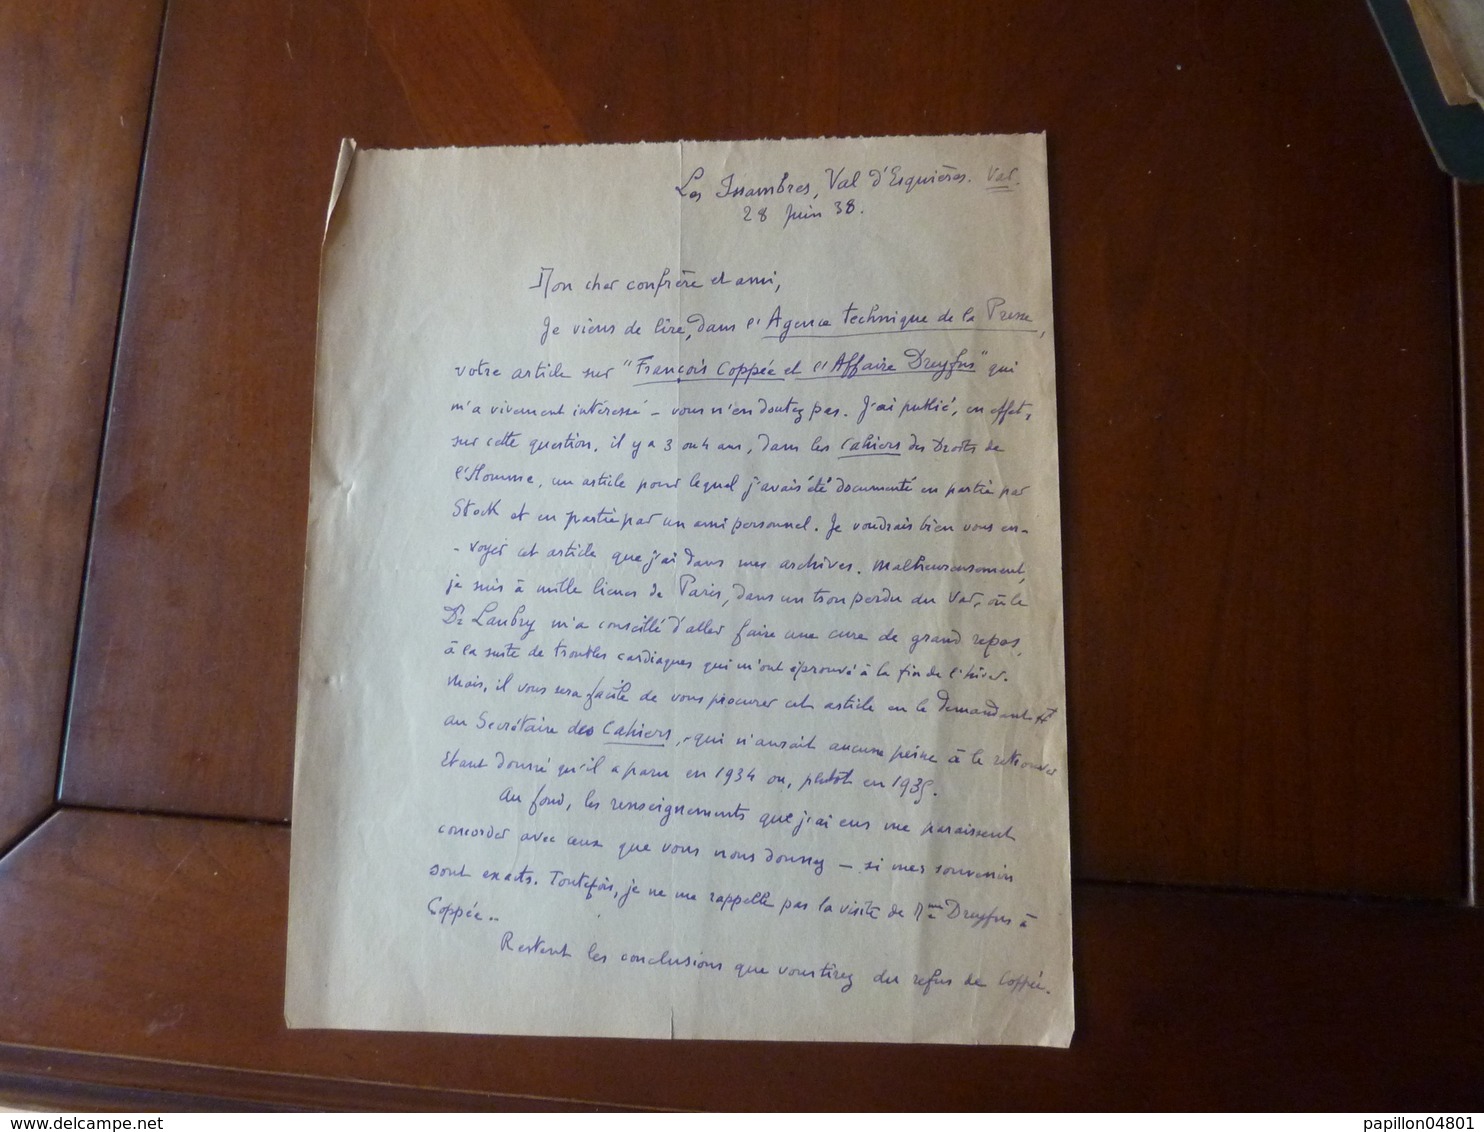 Les Issambres, Val d'Esquières. Var.
28 Juin 38.
Mon cher confrère et ami,
Je viens de lire, dans l'Agence technique de la Presse,
votre article sur "François Coppée et l'Affaire Dreyfus" qui
m'a vivement intéressé - vous n'en doutez pas. J'ai publié, en effet,
sur cette question, il y a 3 ou 4 ans, dans les Cahiers des Droits de
l'Homme, un article pour lequel j'avais été documenté en partie par
Stock et en partie par un ami personnel. Je voudrais bien vous en-
- voyer cet article que j'ai dans mes archives. Malheureusement,
je suis à mille lieues de Paris, dans un trou perdu du Var, où le
Dr Laubry m'a conseillé d'aller faire une cure de grand repos,
à la suite de troubles cardiaques qui m'ont éprouvé à la fin de l'hiver.
Mais, il vous sera facile de vous procurer cet article en le demandant
au Secrétaire des Cahiers, - qui n'aurait aucune peine à le retrouver
étant donné qu'il a paru en 1934 ou, plutôt en 1935.
Au fond, les renseignements que j'ai eus me paraissent
concorder avec ceux que vous nous donnez - si mes souvenirs
sont exacts. Toutefois, je ne me rappelle pas la visite de Mme Dreyfus à
Coppée..
Restent les conclusions que vous tirez du refus de Coppée.
papillon04801